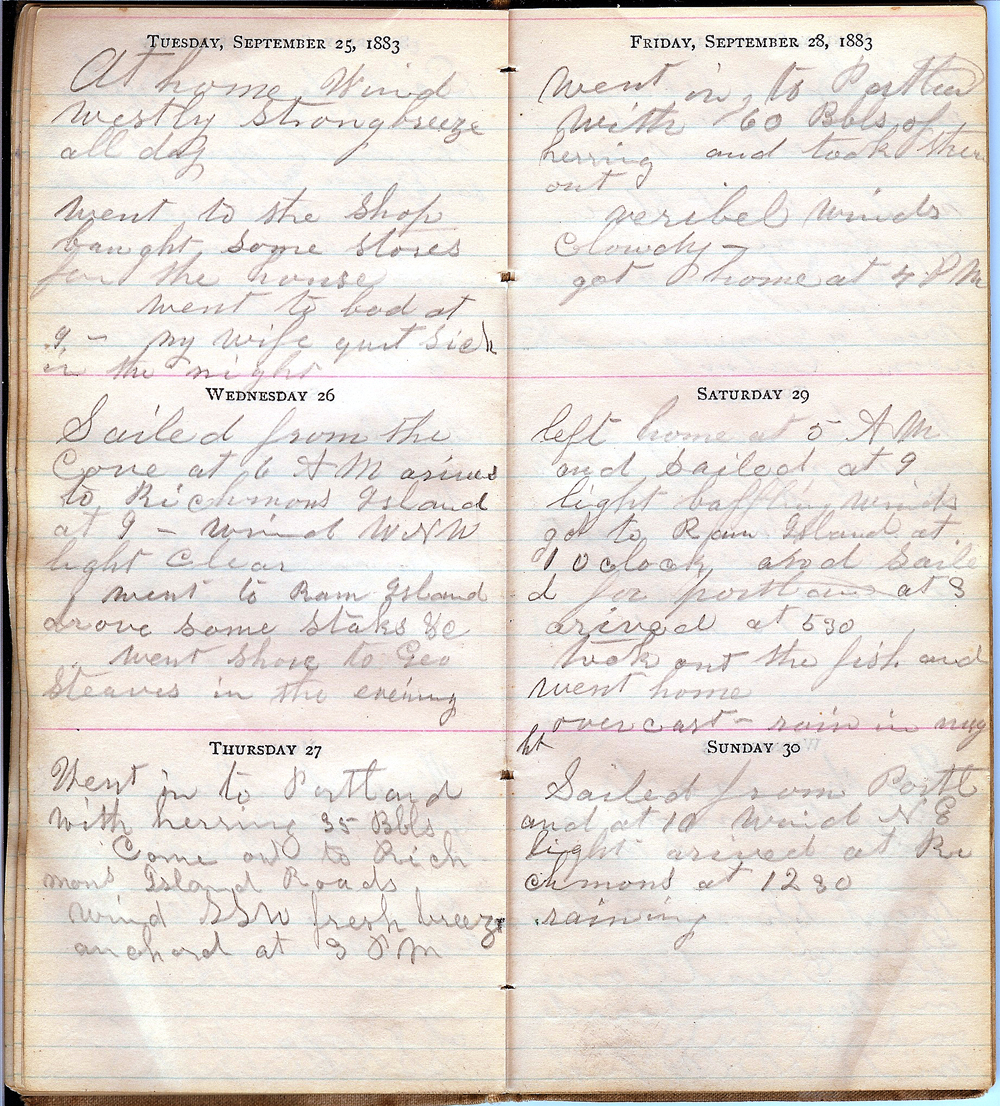 TUESDAY, SEPTEMBER 25, 1883
At home Wind
westly strong breeze
all day
went to the shop
baught some stores
for the house
went to bed at
9 – my wife quit sick
in the night
WEDNESDAY 26
Sailed from the
Cove at 6 A M arived
to Richmons Island
at 9 – wind W N W
light Clear
went to Ram Island
drove some staks &c
went shore to Geo
Steaves in the evening
THURSDAY 27
Went in to Portland
with herring 35 Bbls
Come out to Rich
mons Island Roads
wind SSW fresh breeze
anchord at 3 P M
FRIDAY, SEPTEMBER 28, 1883
went in to Portlan
with 60 Bbls of
herring and took them
out
veribel winds
Clowdy –
got home at 4 P M
SATURDAY 29
left home at 5 A M
and sailed at 9
light baffling winds
got to Ram Island at
1 O clock and Saile
d for portland at 3
arived at 5 30
took out the fish and
went home
overcast – rain in nig
ht
SUNDAY 30
Sailed from Portl
and at 10 Wind N E
light arived at Ri
chmons at 12 30
raining